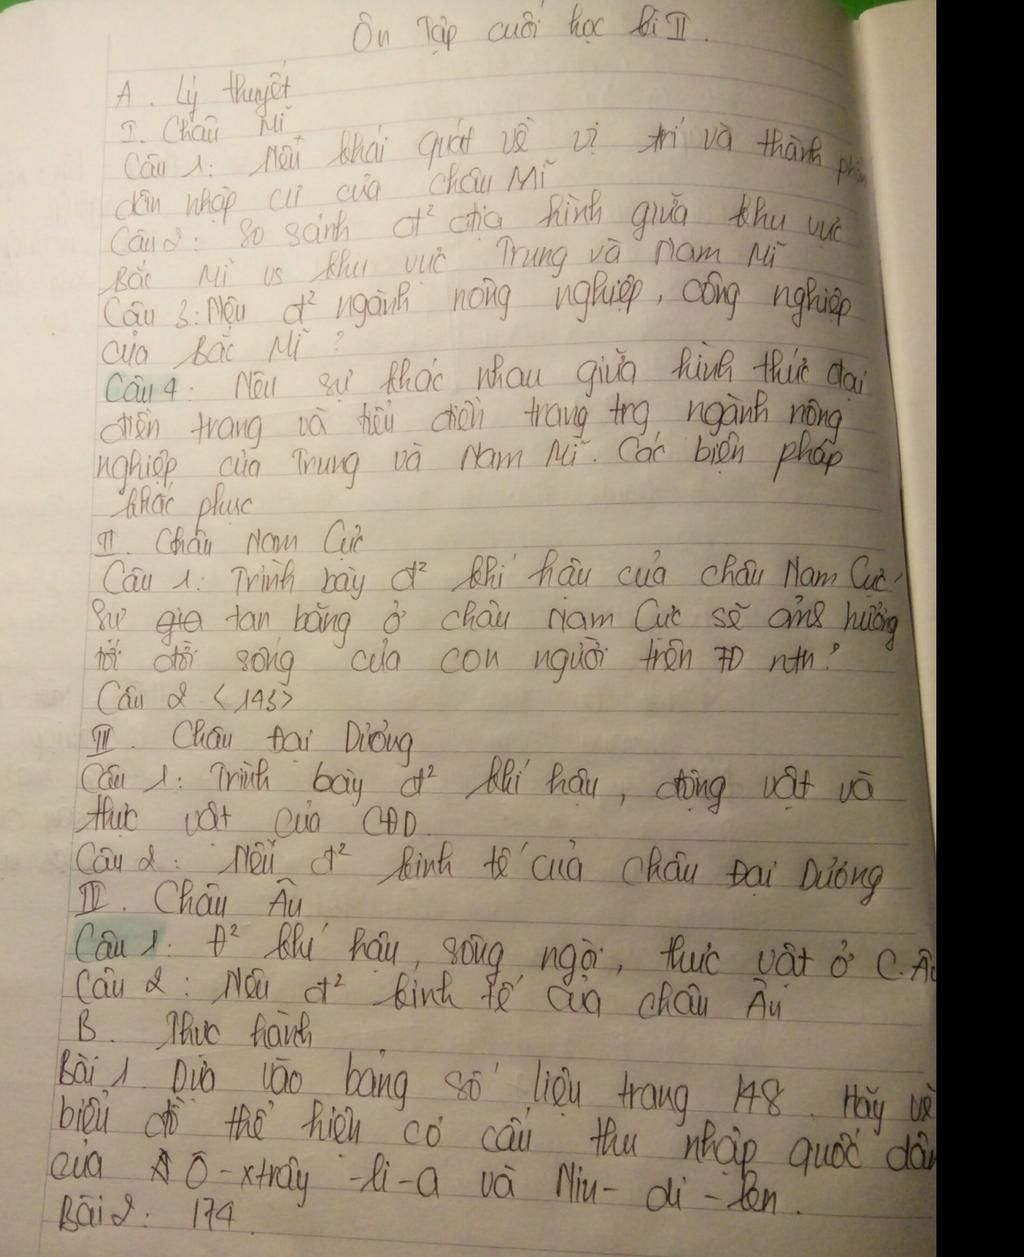 Ôn Tập cuối học kì II.
A. Lý thuyết
I. Châu Mĩ
Câu 1: Nêu khái quát về vị trí và thành phần
dân nhập cư của châu Mĩ
Câu 2: So sánh đ² địa hình giữa khu vực
Bắc Mĩ vs khu vực Trung và Nam Mĩ
Câu 3: Nêu đ² ngành nông nghiệp, công nghiệp
của Bắc Mĩ?
Câu 4: Nêu sự khác nhau giữa hình thức đại
điền trang và tiểu điền trang trg ngành nông
nghiệp của Trung và Nam Mĩ. Các biện pháp
khắc phục
II. Châu Nam Cực
Câu 1: Trình bày đ² khí hậu của châu Nam Cực.
Sự tan băng ở châu Nam Cực sẽ ảnh hưởng
tới đời sống của con người trên TĐ ntn?
Câu 2 <143>
III. Châu Đại Dương
Câu 1: Trình bày đ² khí hậu, động vật và
thực vật của CĐD
Câu 2: Nêu đ² kinh tế của châu Đại Dương
IV. Châu Âu
Câu 1: Đ² khí hậu, sông ngòi, thực vật ở C.Âu
Câu 2: Nêu đ² kinh tế của châu Âu
B. Thực hành
Bài 1. Dựa vào bảng số liệu trang 148. Hãy vẽ
biểu đồ thể hiện cơ cấu thu nhập quốc dân
của Ô-xtrây-li-a và Niu-di-len.
Bài 2: 174.